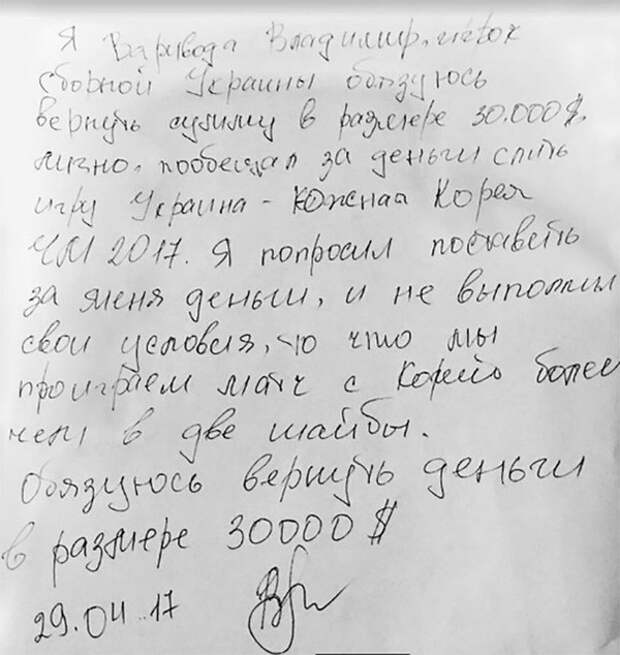 Я Варивода Владимир, игрок
сборной Украины обязуюсь
вернуть сумму в размере 30.000$,
лично. пообещал за деньги слить
игру Украина - Южная Корея
ЧМ 2017. Я попросил поставеть
за меня деньги, и не выполнил
свои условия, то что мы
проиграем матч с Корейо более
чем в две шайбы.
Обязуюсь вернуть деньги
в размере 30000 $
29.04.17